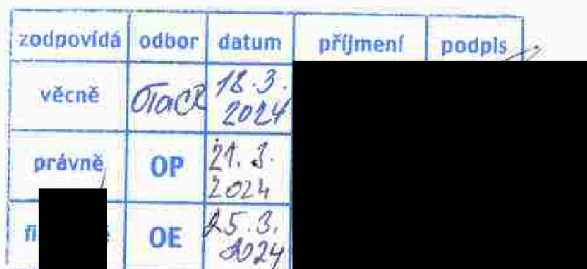 zodpovídá odbor datum příjmení podpis
věcně OTaCR 18.3.
2024
právně OP 21.3.
2024
OE 25.3.
2024